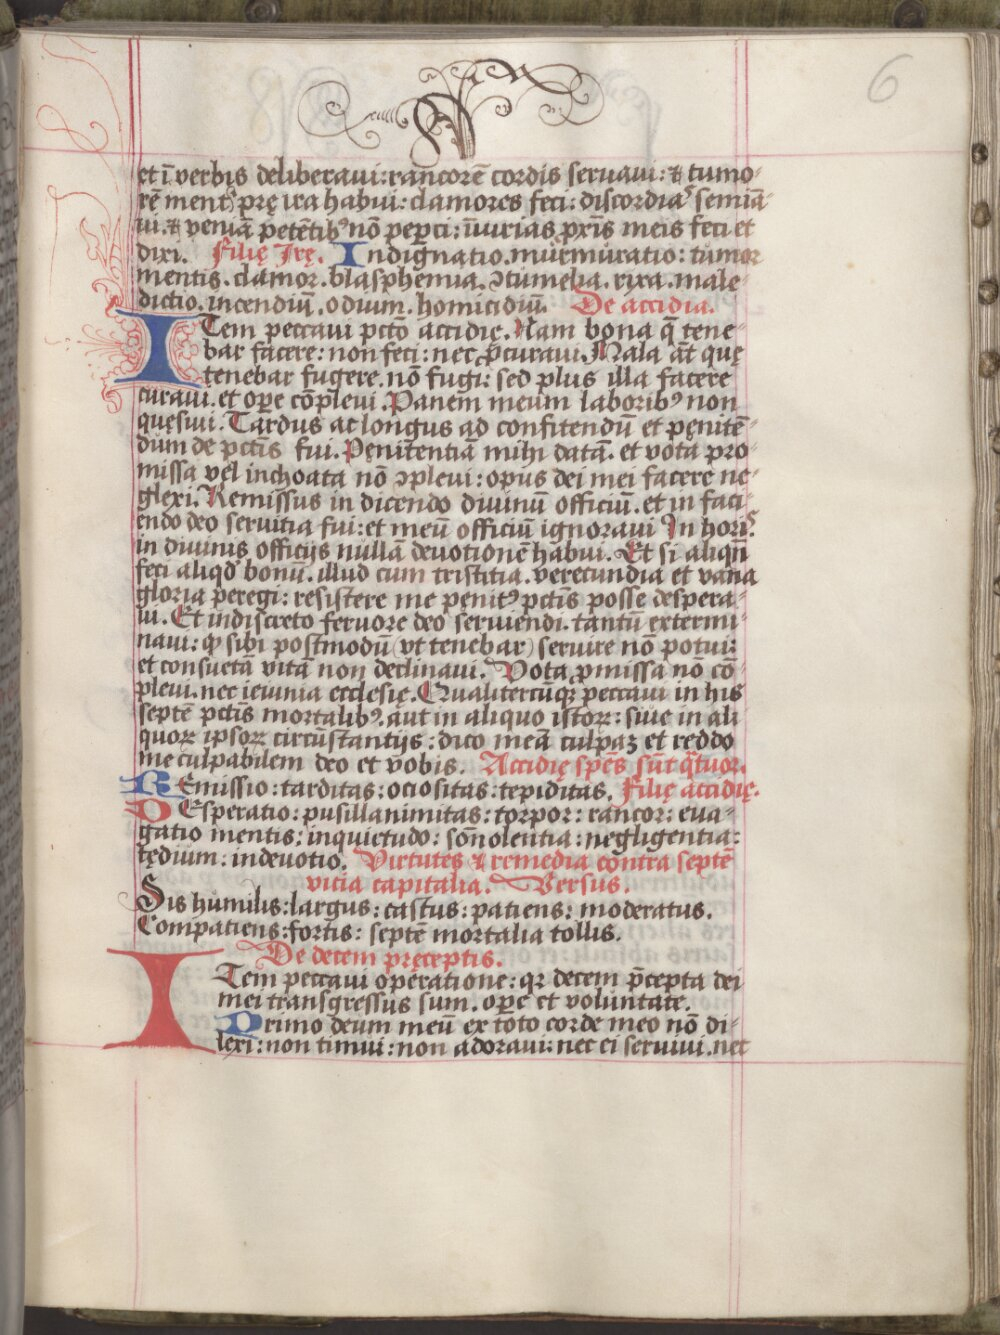 6
et ī verbis deliberaui: rancorē cordis seruaui: & tumo-
rē mentꝭ prę ira habui: clamores feci: discordiaꝭ semiā-
ui. & veniā petētibꝰ nō peperci: iniurias pxīs meis feci et
dixi. Filię Irę. Indignatio. murmuratio: tumor
mentis. clamor. blasphemia. ꝯtumelia. rixa. male-
dictio. incendiū. odium. homicidiū. De accidia.
ITem peccaui pctō accidię. Nam bona q̄ tene-
bar facere: non feci: nec p̄curaui. Mala āt quę
tenebar fugere. nō fugi: sed plus illa facere
curaui. et ope cōpleui. Panem meum laboribꝰ non
quesiui. Tardus ac longus ad confitendū et pęnitē-
dum de pctīs fui. Penitentiā mihi datā. et vota pro-
missa vel inchoata nō ꝯpleui: opus dei mei facere ne-
glexi. Remissus in dicendo diuinū officiū. et in faci-
endo deo seruitia fui: et meū officiū ignoraui In horꝭ
in diuinis officijs nullā deuotionē habui. Et si aliqn̄
feci aliqd bonū. illud cum tristitia. verecundia et vana
gloria peregi: resistere me penitꝰ pctīs posse despera-
ui. Et indiscreto feruore deo seruiendi. tantū extermi-
naui: ꝙ sibi postmodū (vt tenebar) seruire nō potui:
et consuetā vitā non declinaui. Vota pmissa nō cō-
pleui. nec ieiunia ecclesię. Qualitercūqꝫ peccaui in his
septē pctīs mortalibꝰ. aut in aliquo istoꝝ: siue in ali
quoꝝ ipsoꝝ circūstantijs: dico meā culpaꝫ et reddo
me culpabilem deo et vobis. Accidię spēs sūt q̄tuor.
REmissio: tarditas: ociositas: tepiditas. Filię accidię.
DEsperatio: pusillanimitas: torpor: rancor: eua-
gatio mentis: inquietudo: sōnolentia: negligentia:
tędium: indeuotio. Virtutes & remedia contra septē
vitia capitalia. Versus.
Sis humilis: largus: castus: patiens: moderatus.
Compatiens: fortis: septē mortalia tollis.
De decem pręceptis.
ITem peccaui operatione: qꝛ decem p̄cepta dei
mei transgressus sum. ope et voluntate.
Primo deum meū ex toto corde meo nō di-
lexi: non timui: non adoraui: nec ei seruiui. nec